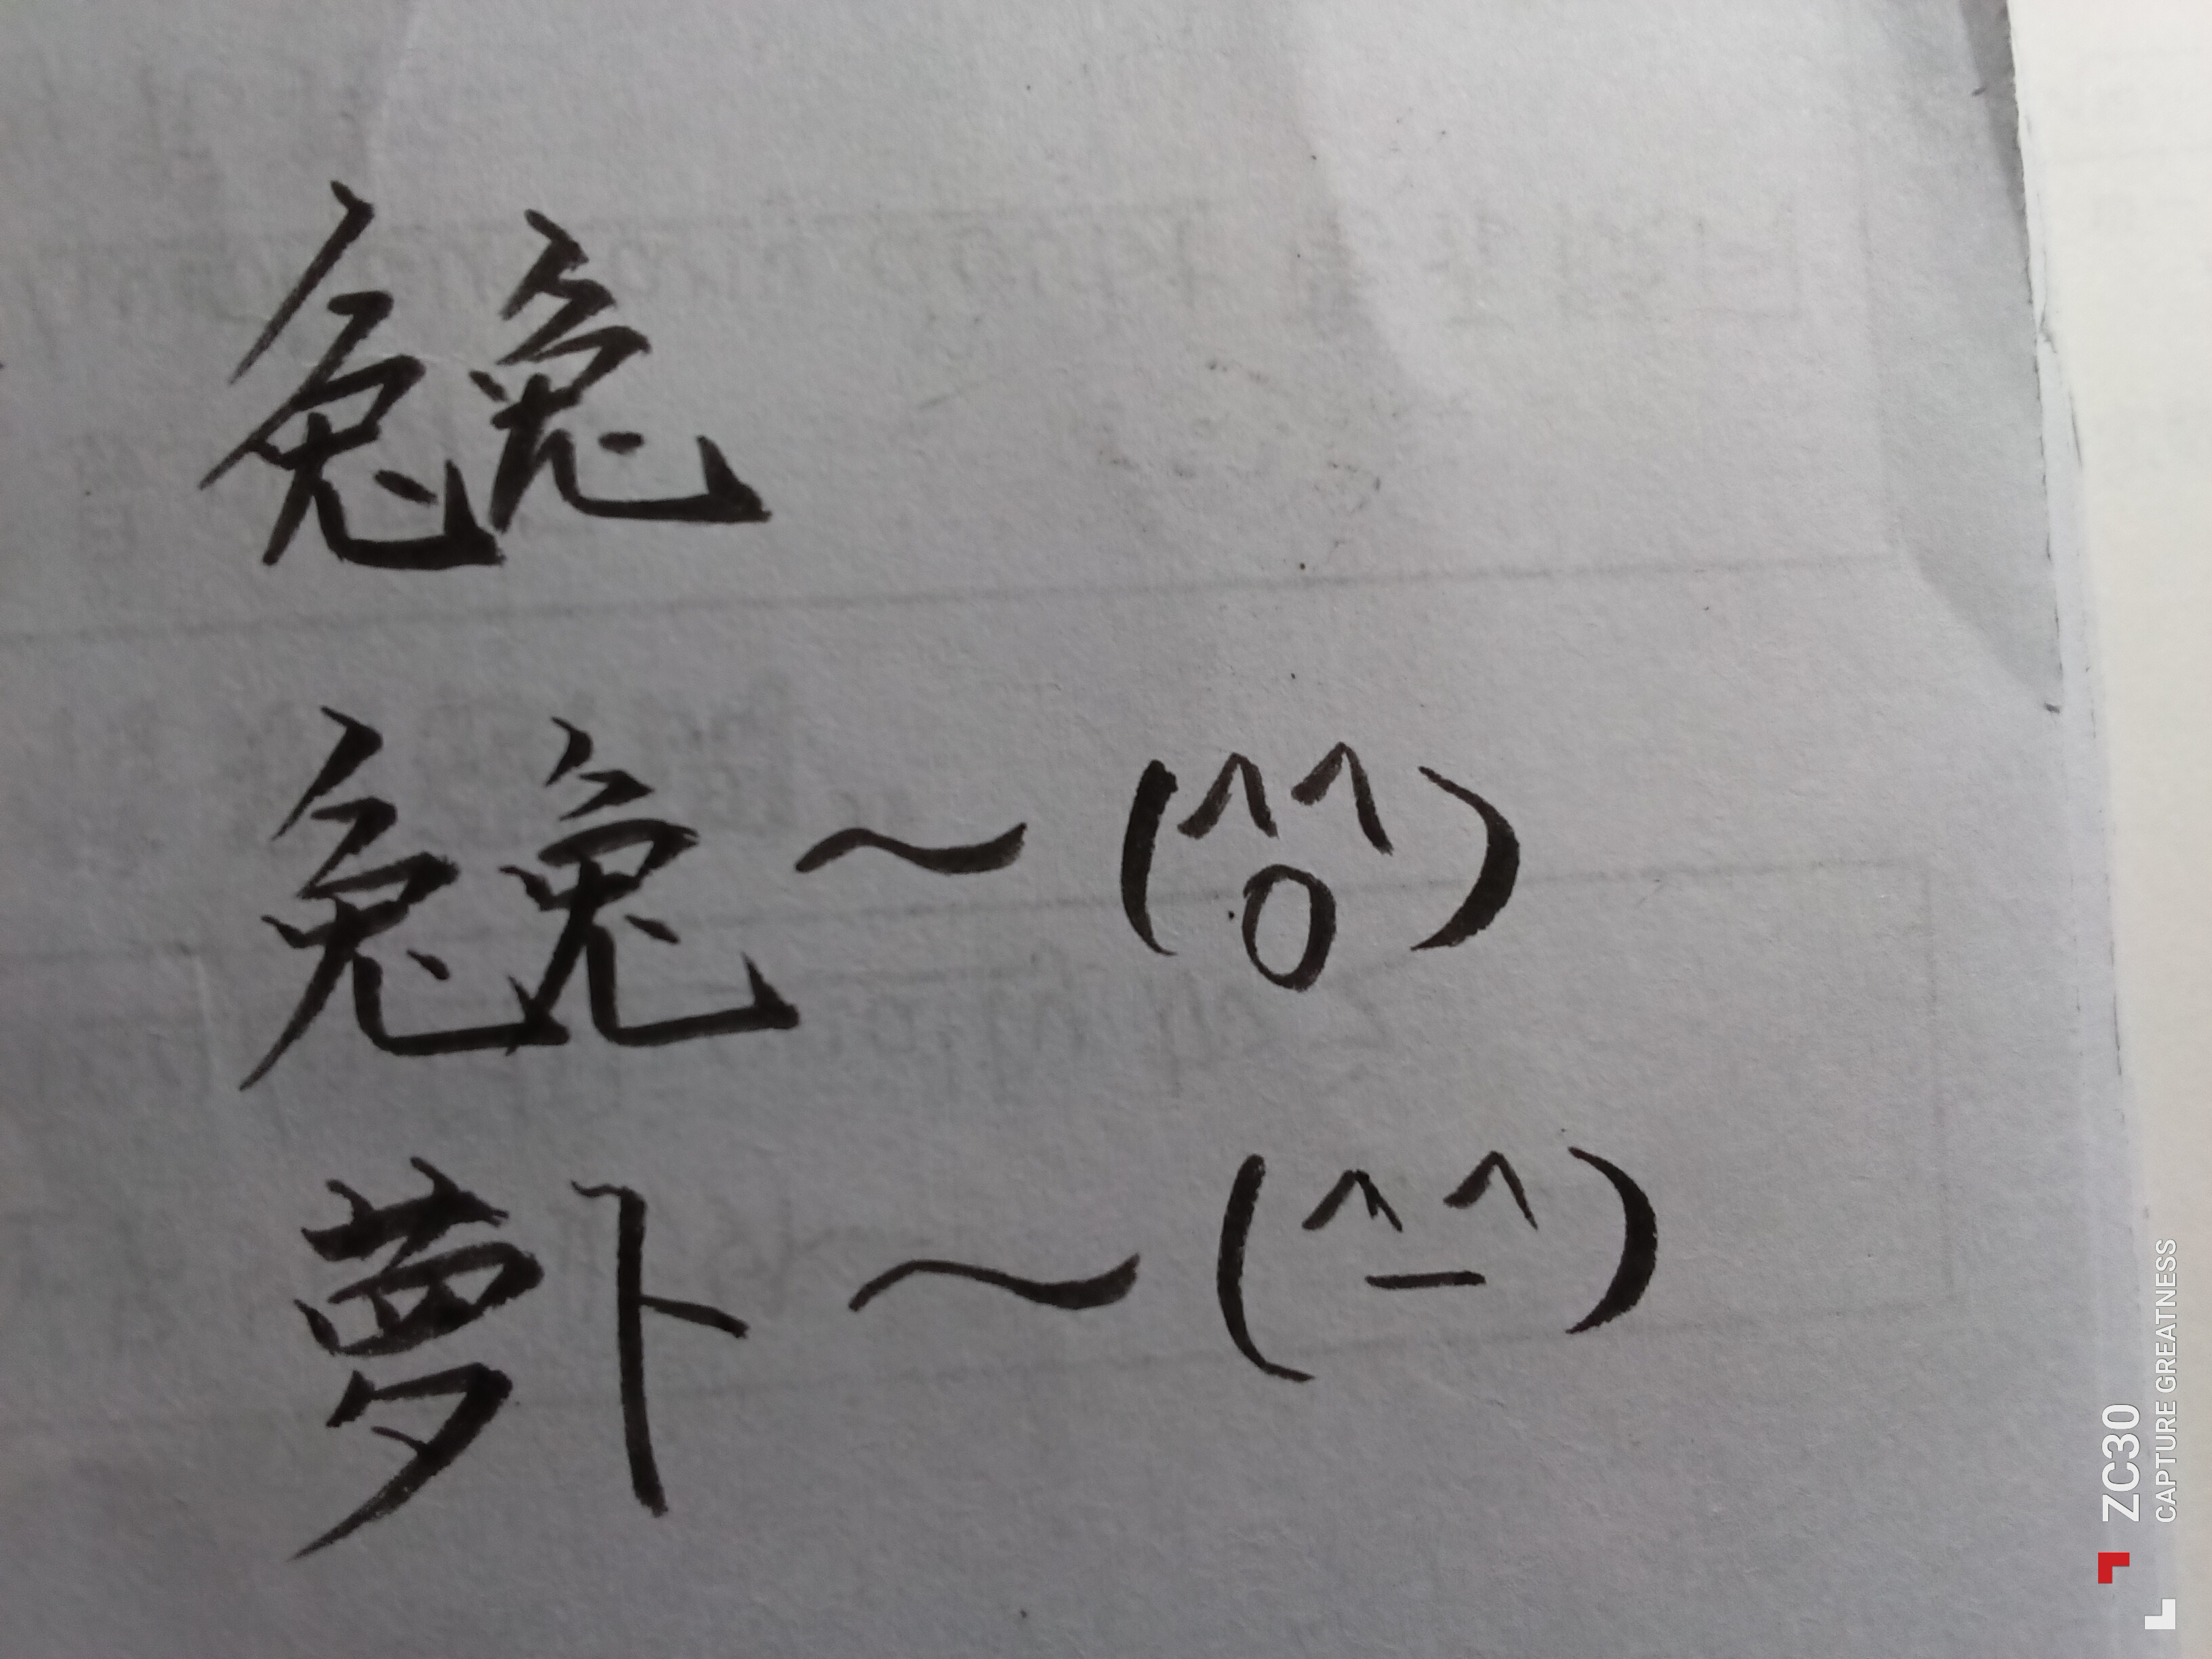 兔兔
兔兔～(^^0)
萝卜～(^-^)
ZC30
CAPTURE GREATNESS